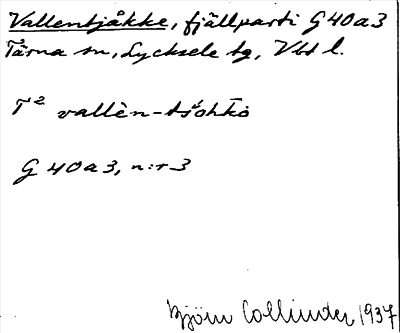 Vallentjåkke, fjällparti G 40 a 3
Tärna sn, Lycksele tg, Vbt l.
T² vallèn-tš́ohkò
G 40 a 3, n:r 3
Björn Collinder 1937